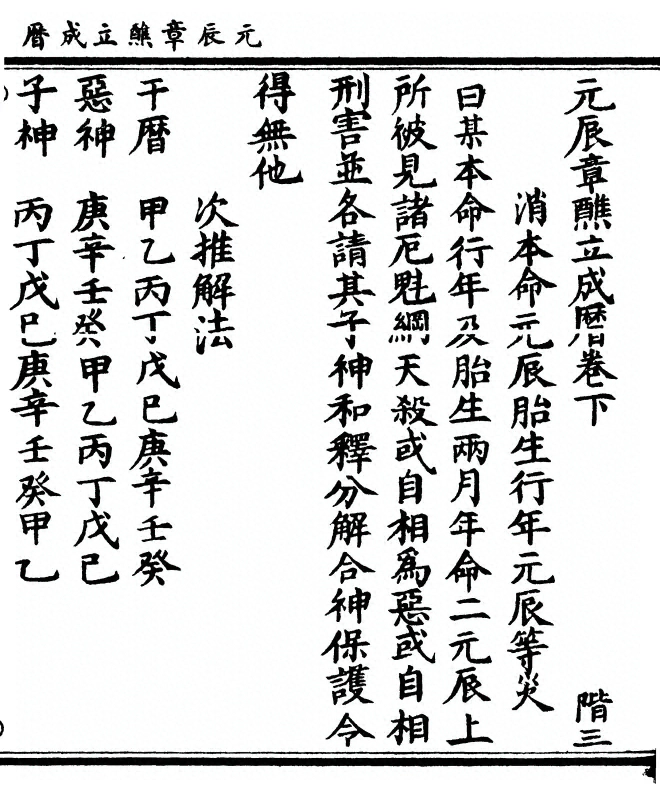 元辰章醮立成曆
元辰章醮立成曆卷下 階三
消本命元辰胎生行年元辰等災
曰某本命行年及胎生兩月年命二元辰上
所彼見諸厄魁綱天殺或自相為惡或自相
刑害並各請其子神和釋分解合神保護令
得無他
次推解法
干曆 甲乙丙丁戊巳庚辛壬癸
惡神 庚辛壬癸甲乙丙丁戊巳
子神 丙丁戊巳庚辛壬癸甲乙